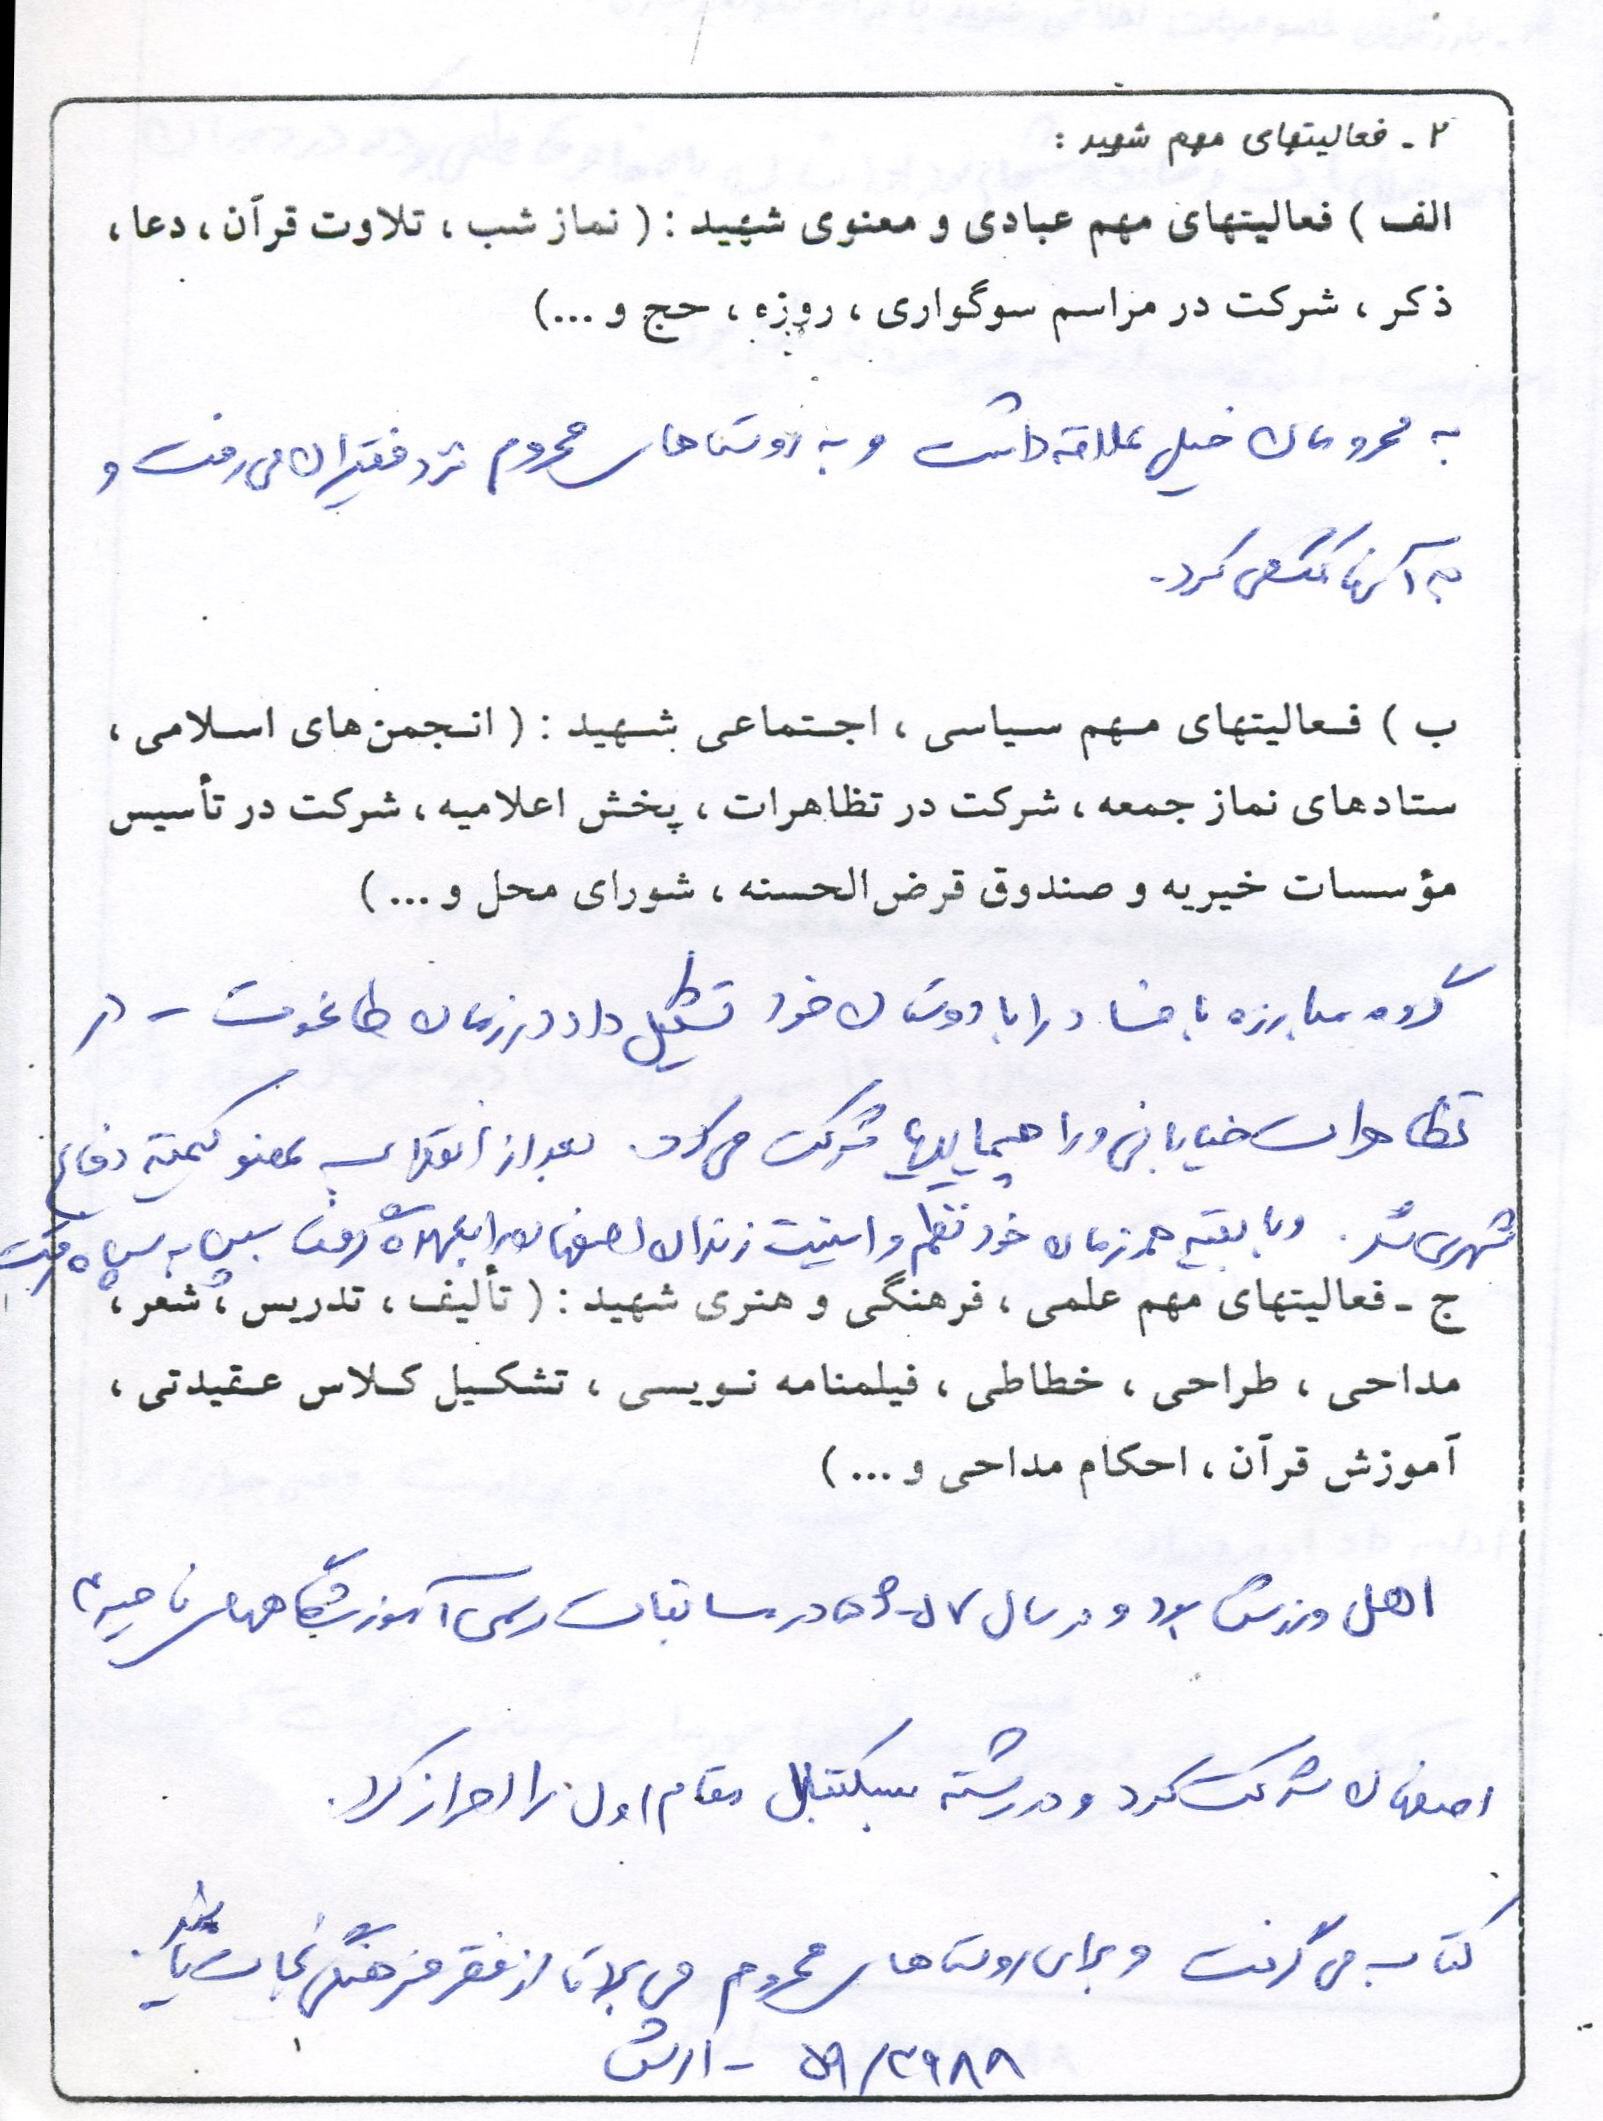 ۲ - فعالیتهای مهم شهید :
الف ) فعالیتهای مهم عبادی و معنوی شهید : ( نماز شب ، تلاوت قرآن ، دعا ،
ذکر ، شرکت در مراسم سوگواری ، روزه ، حج و ...)
به محرومان خیلی علاقه داشت و به روستاهای محروم نزد فقیران می رفت و
به آنها کمک می کرد.
ب ) فعالیتهای مهم سیاسی ، اجتماعی شهید : ( انجمن‌های اسلامی ،
ستادهای نماز جمعه ، شرکت در تظاهرات ، پخش اعلامیه ، شرکت در تأسیس
مؤسسات خیریه و صندوق قرض‌الحسنه ، شورای محل و ... )
گروه مبارزه با فساد را با دوستان خود تشکیل داد در زمان طاغوت - در
تظاهرات خیابانی و راهپیماییها شرکت می کرد. بعد از انقلاب عضو کمیته دفاع
شهری شد. و با بقیه همرزمان خود نظم و امنیت زندان اصفهان را بعهده گرفت سپس به سپاه رفت
ج - فعالیتهای مهم علمی ، فرهنگی و هنری شهید : ( تألیف ، تدریس ، شعر ،
مداحی ، طراحی ، خطاطی ، فیلمنامه نویسی ، تشکیل کلاس عقیدتی ،
آموزش قرآن ، احکام مداحی و ... )
اهل ورزش بود و در سال ۵۷-۵۶ در مسابقات رسمی آموزشگاههای ناحیه ۳
اصفهان شرکت کرد و در رشته بسکتبال مقام اول را احراز کرد.
کتاب می گرفت و برای روستاهای محروم می برد تا از فقر فرهنگی نجات یابند.
۵۹/۲۹۸۸ -